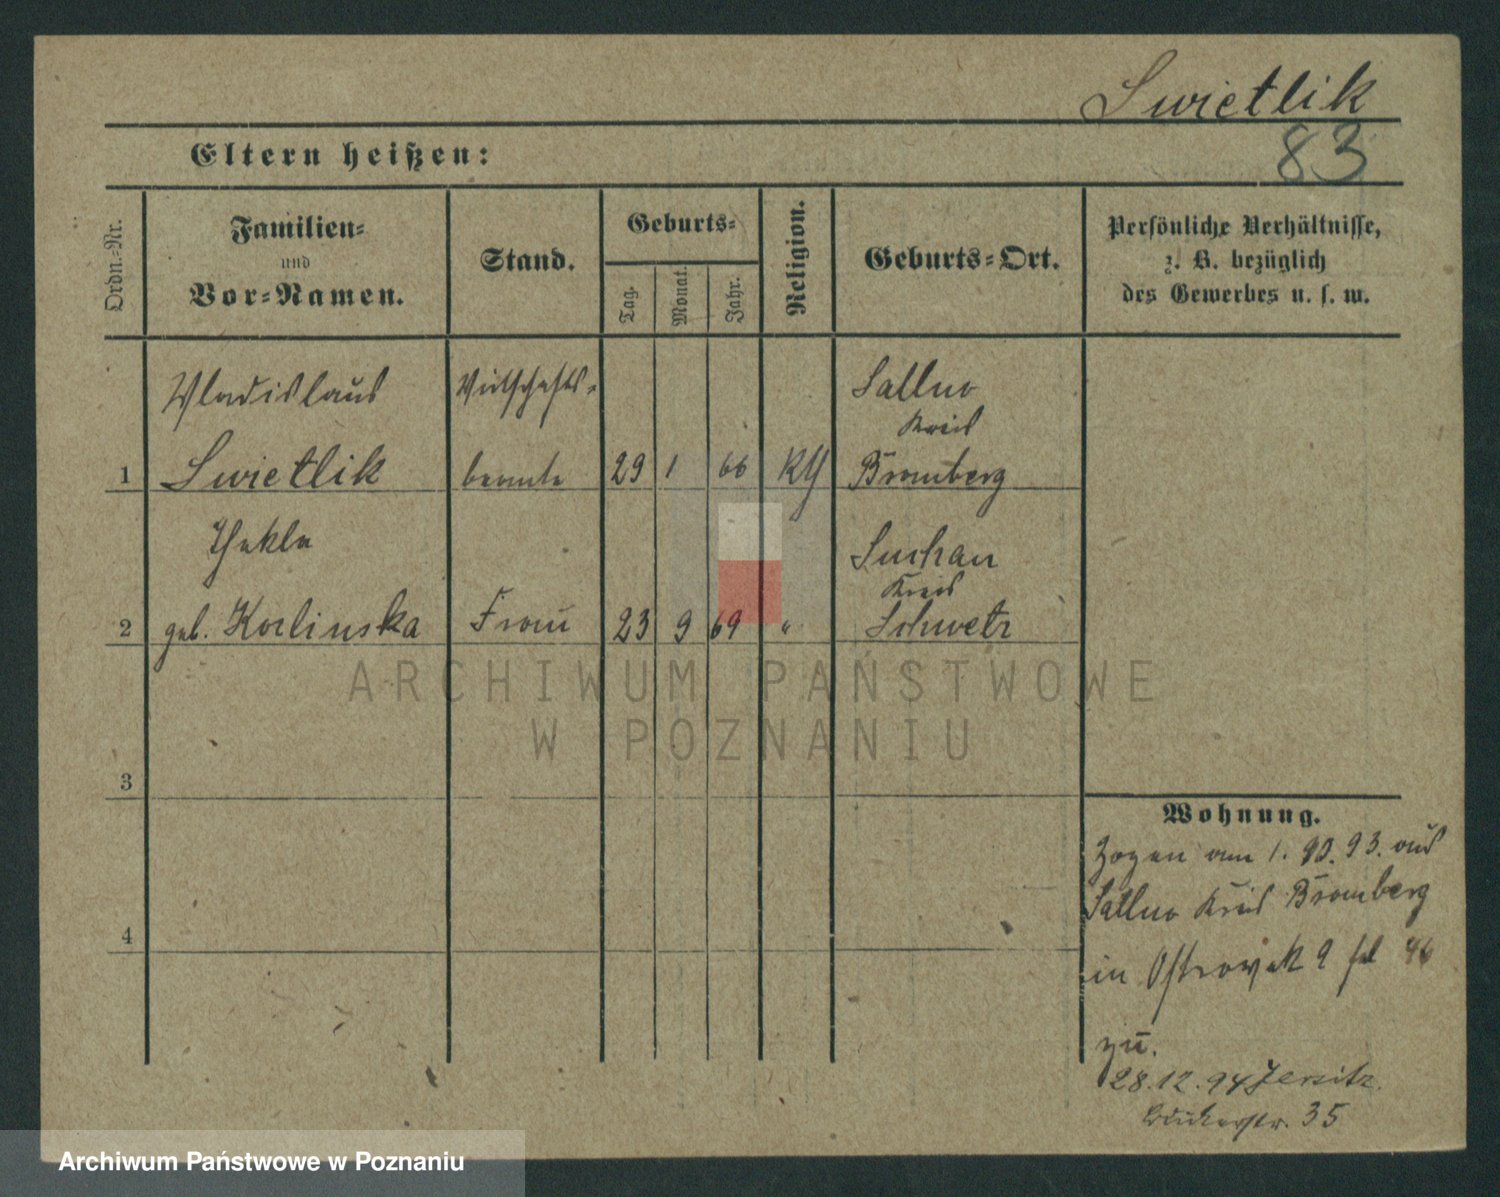 Swietlik
83
Eltern heißen:
Ordn.-Nr.
Familien-
und
Vor-Namen.
Stand.
Geburts-
Tag.
Monat.
Jahr.
Religion.
Geburts-Ort.
Persönliche Verhältnisse,
z. B. bezüglich
des Gewerbes u. s. w.
Wladislaus
Wirtschafts-
Sallno
Kreis
1 Swietlik beamte 29 1 66 Bromberg
Thekla
Suchau
Kreis
2 geb. Karlinska Frau 23 9 69 " Schwetz
3
4
Wohnung.
Zogen am 1. 10. 93. aus
Sallno Kreis Bromberg
in
zu.
28.12.94 Jersitz.
35
ARCHIWUM PAŃSTWOWE
W POZNANIU
Archiwum Państwowe w Poznaniu